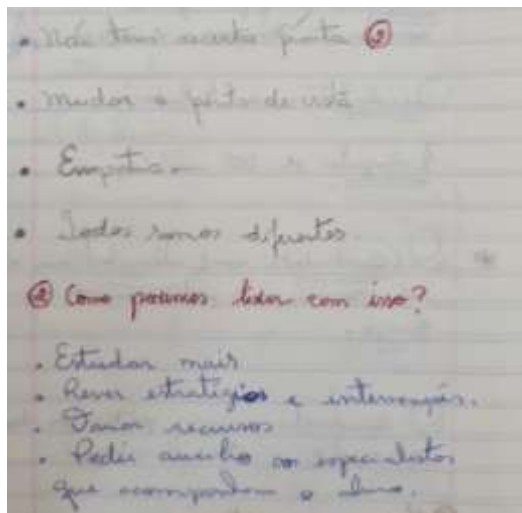 • Não tem receita pronta ②
• Mudar o ponto de vista
• Empatia.
• Todos somos diferentes.
② Como podemos lidar com isso?
• Estudar mais
• Rever estratégias e intervenções.
• Variar recursos
• Pedir auxílio aos especialistas
que acompanham o aluno.